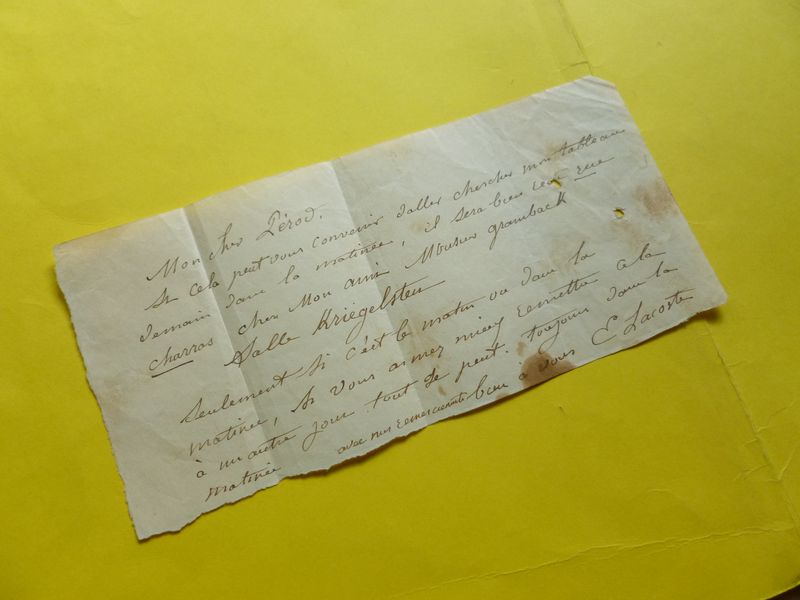 Mon cher Pérod.
Si cela peut vous convenir d'aller chercher mon tableau
demain dans la matinée, il sera bien reçu rue
charras cher Mon ami Monsieur gramback
Salle Kriegelstein
Seulement si c'est le matin ou dans la
matinée, si vous aimez mieux remettre cela
à un autre jour tout se peut. toujours dans la
matinée avec mes remerciements bien à vous E Lacoste